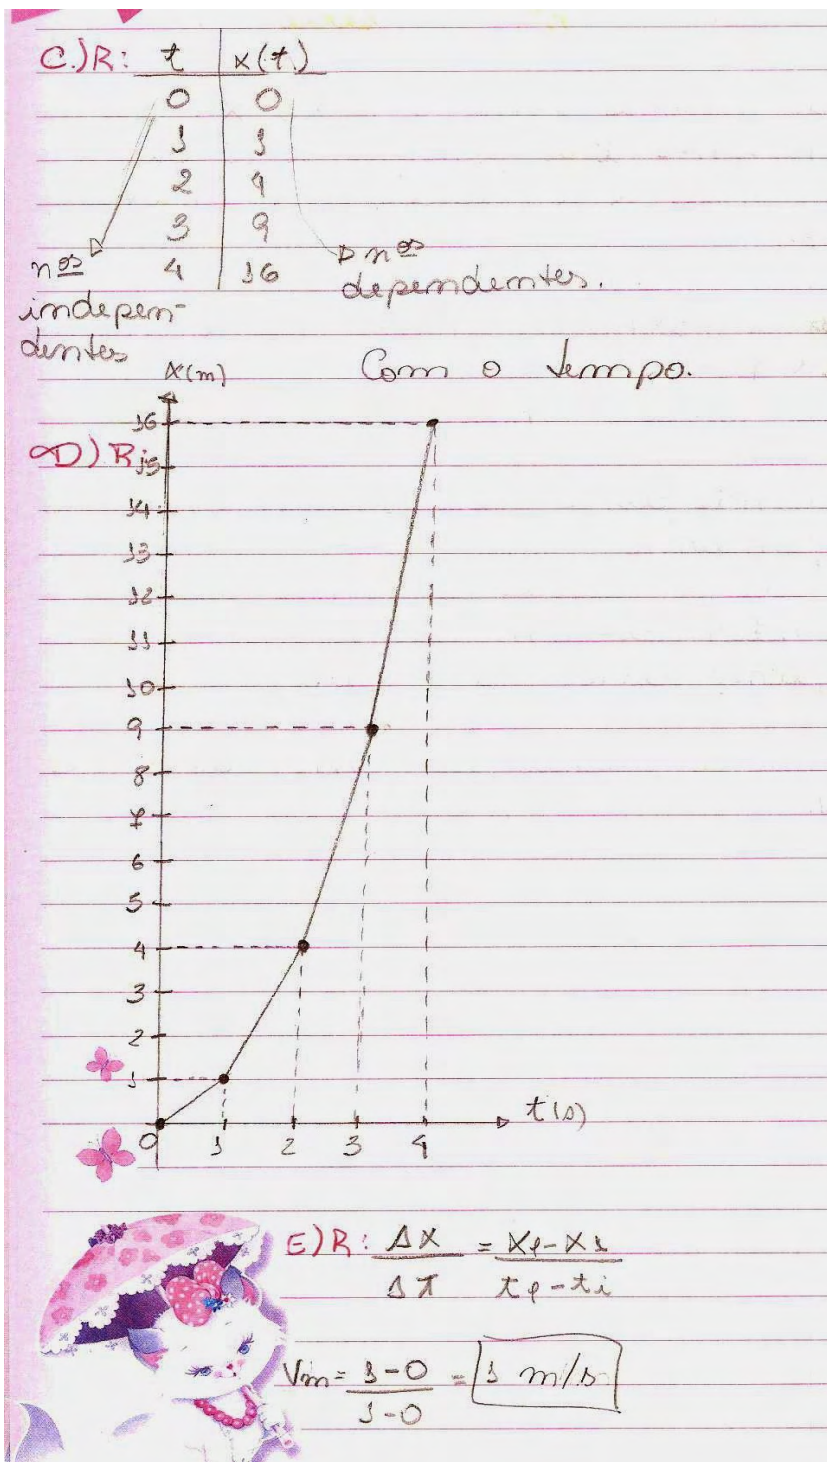 C.)R: t x(t)
0 0
1 1
2 4
3 9
4 16
nos independentes
nos dependentes.
Com o tempo.
D) R:
x(m)
16
15
14
13
12
11
10
9
8
7
6
5
4
3
2
1
0 1 2 3 4
t(s)
E)R: Δx = xf-xi
Δt tf-ti
Vm = 1-0 = 1 m/s
1-0